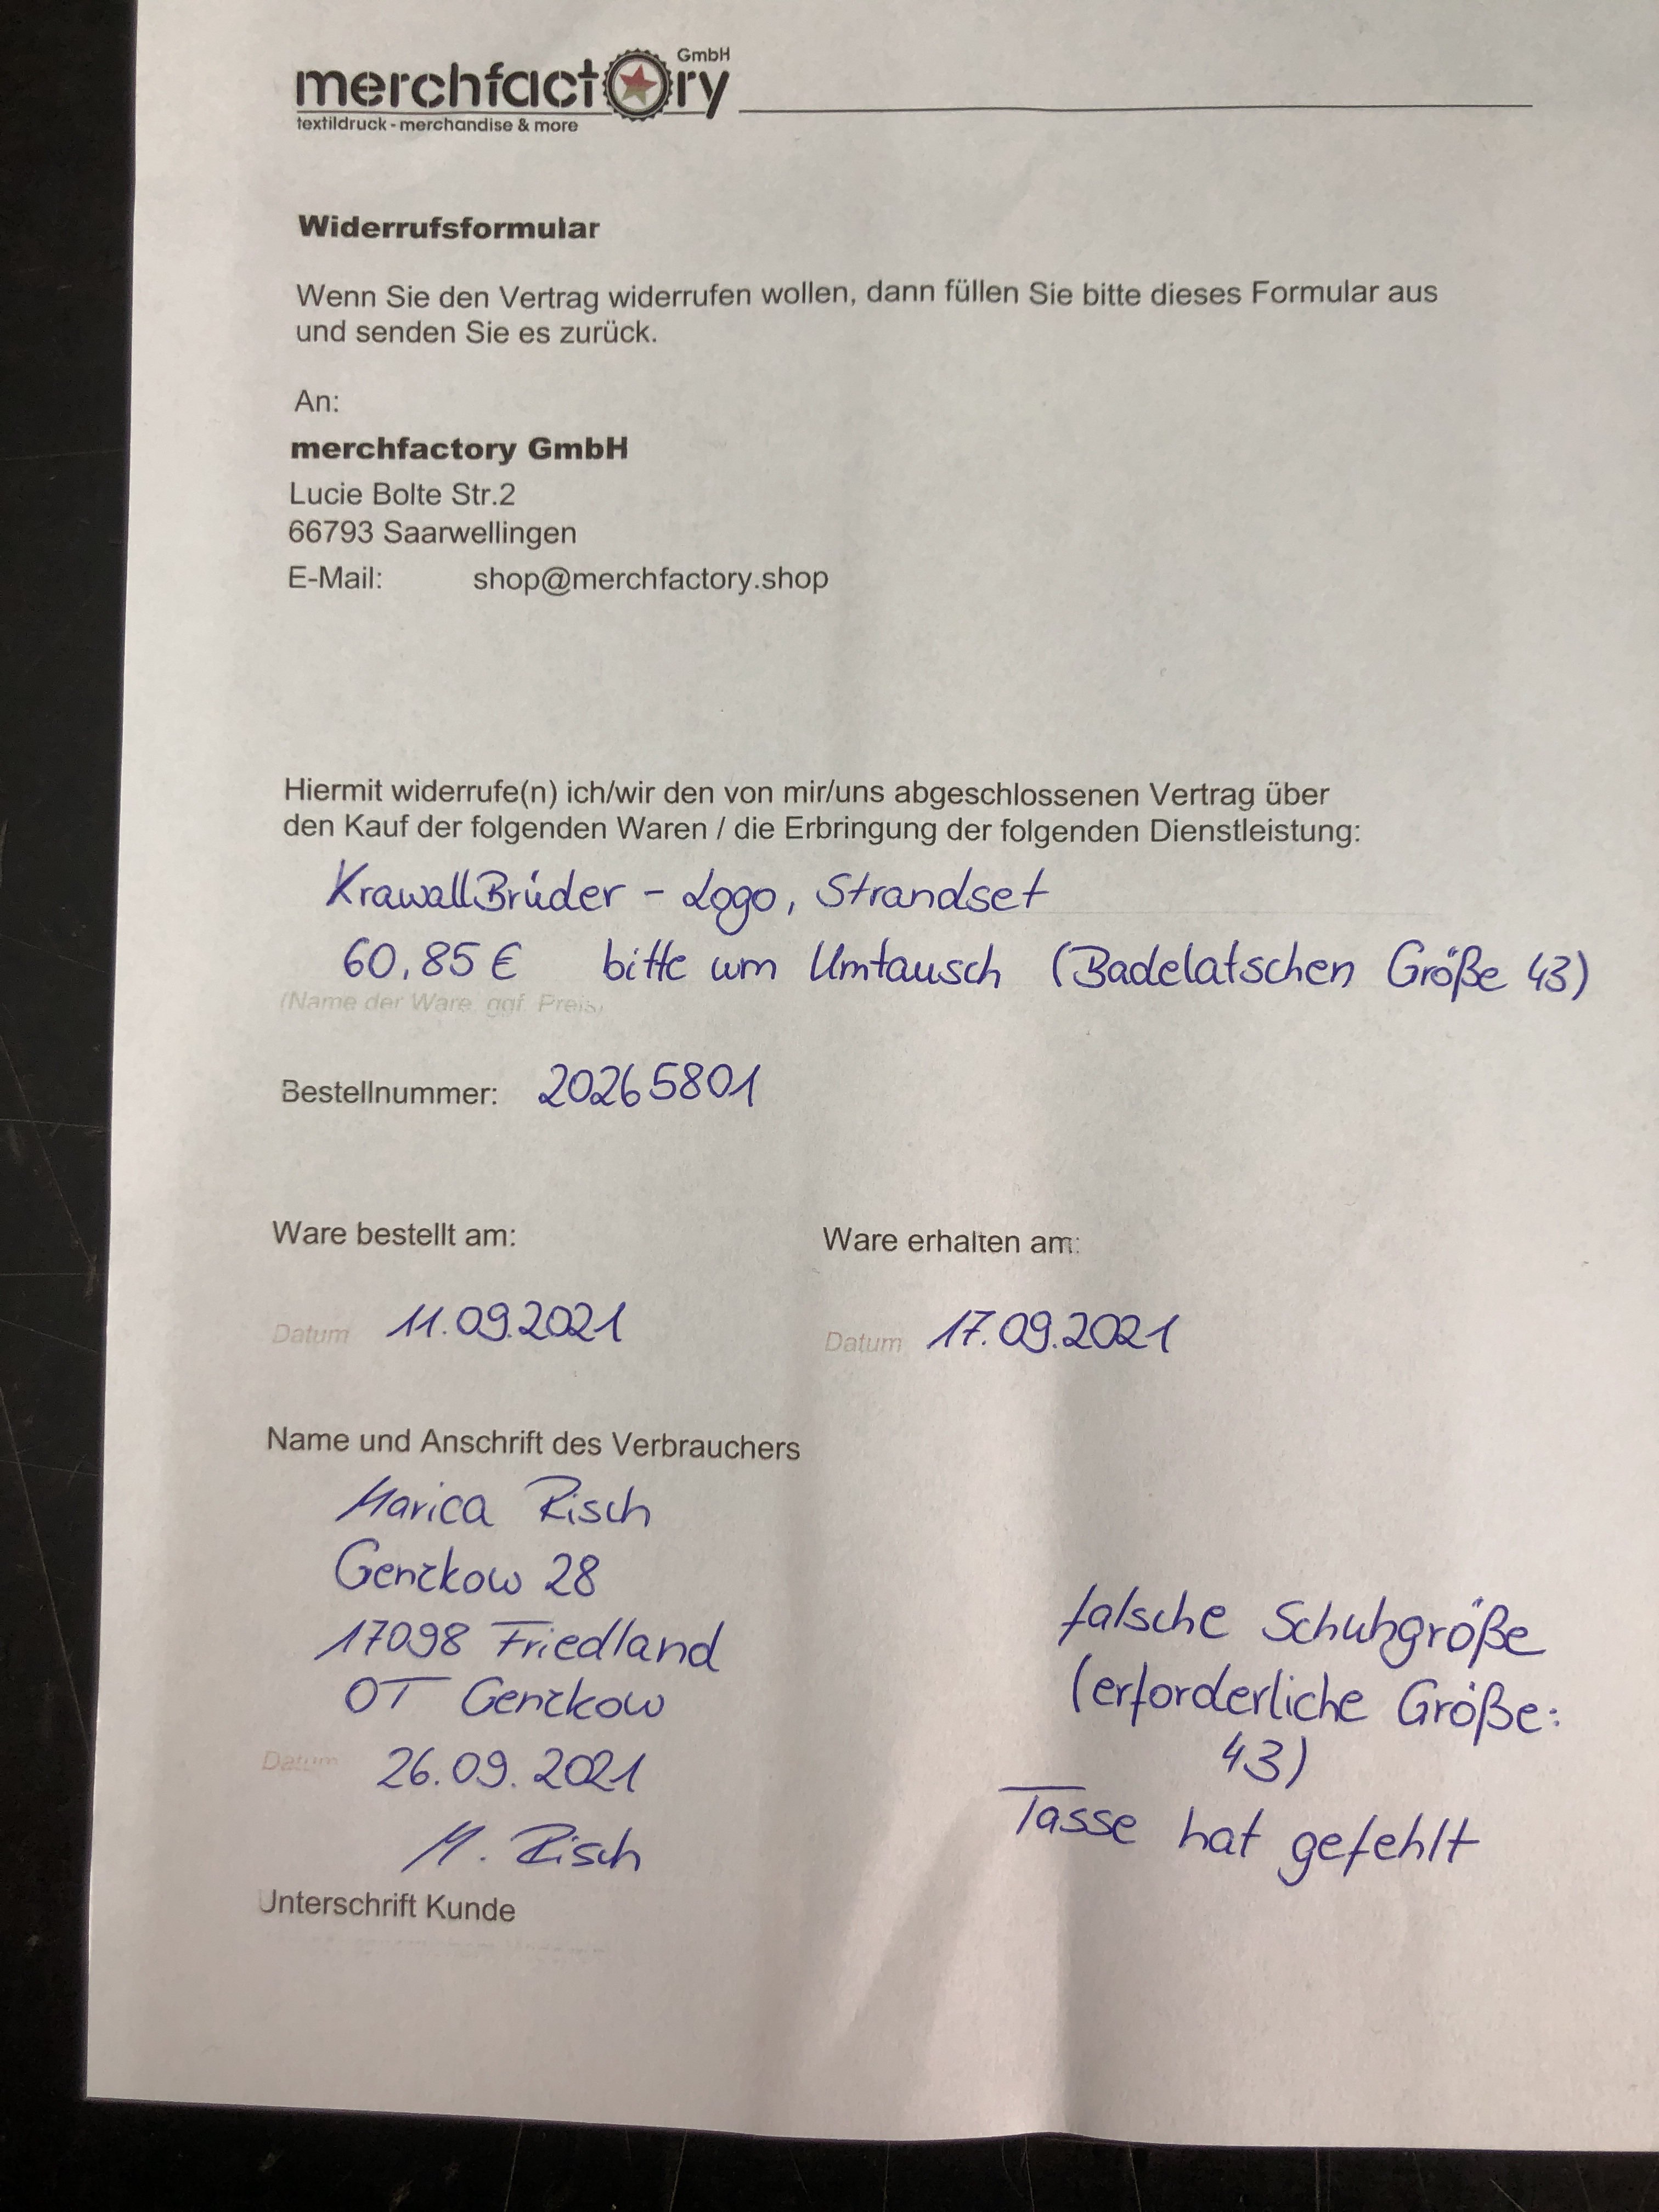 merchfactory GmbH
textildruck - merchandise & more
Widerrufsformular
Wenn Sie den Vertrag widerrufen wollen, dann füllen Sie bitte dieses Formular aus
und senden Sie es zurück.
An:
merchfactory GmbH
Lucie Bolte Str.2
66793 Saarwellingen
E-Mail: shop@merchfactory.shop
Hiermit widerrufe(n) ich/wir den von mir/uns abgeschlossenen Vertrag über
den Kauf der folgenden Waren / die Erbringung der folgenden Dienstleistung:
KrawallBrüder - Logo, Strandset
60,85 € bitte um Umtausch (Badelatschen Größe 43)
(Name der Ware, ggf. Preis)
Bestellnummer: 20265801
Ware bestellt am: Ware erhalten am:
Datum 11.09.2021 Datum 17.09.2021
Name und Anschrift des Verbrauchers
Marica Risch
Genzkow 28
17098 Friedland
OT Genzkow
Datum 26.09.2021
M. Risch
Unterschrift Kunde
falsche Schuhgröße
(erforderliche Größe:
43)
Tasse hat gefehlt